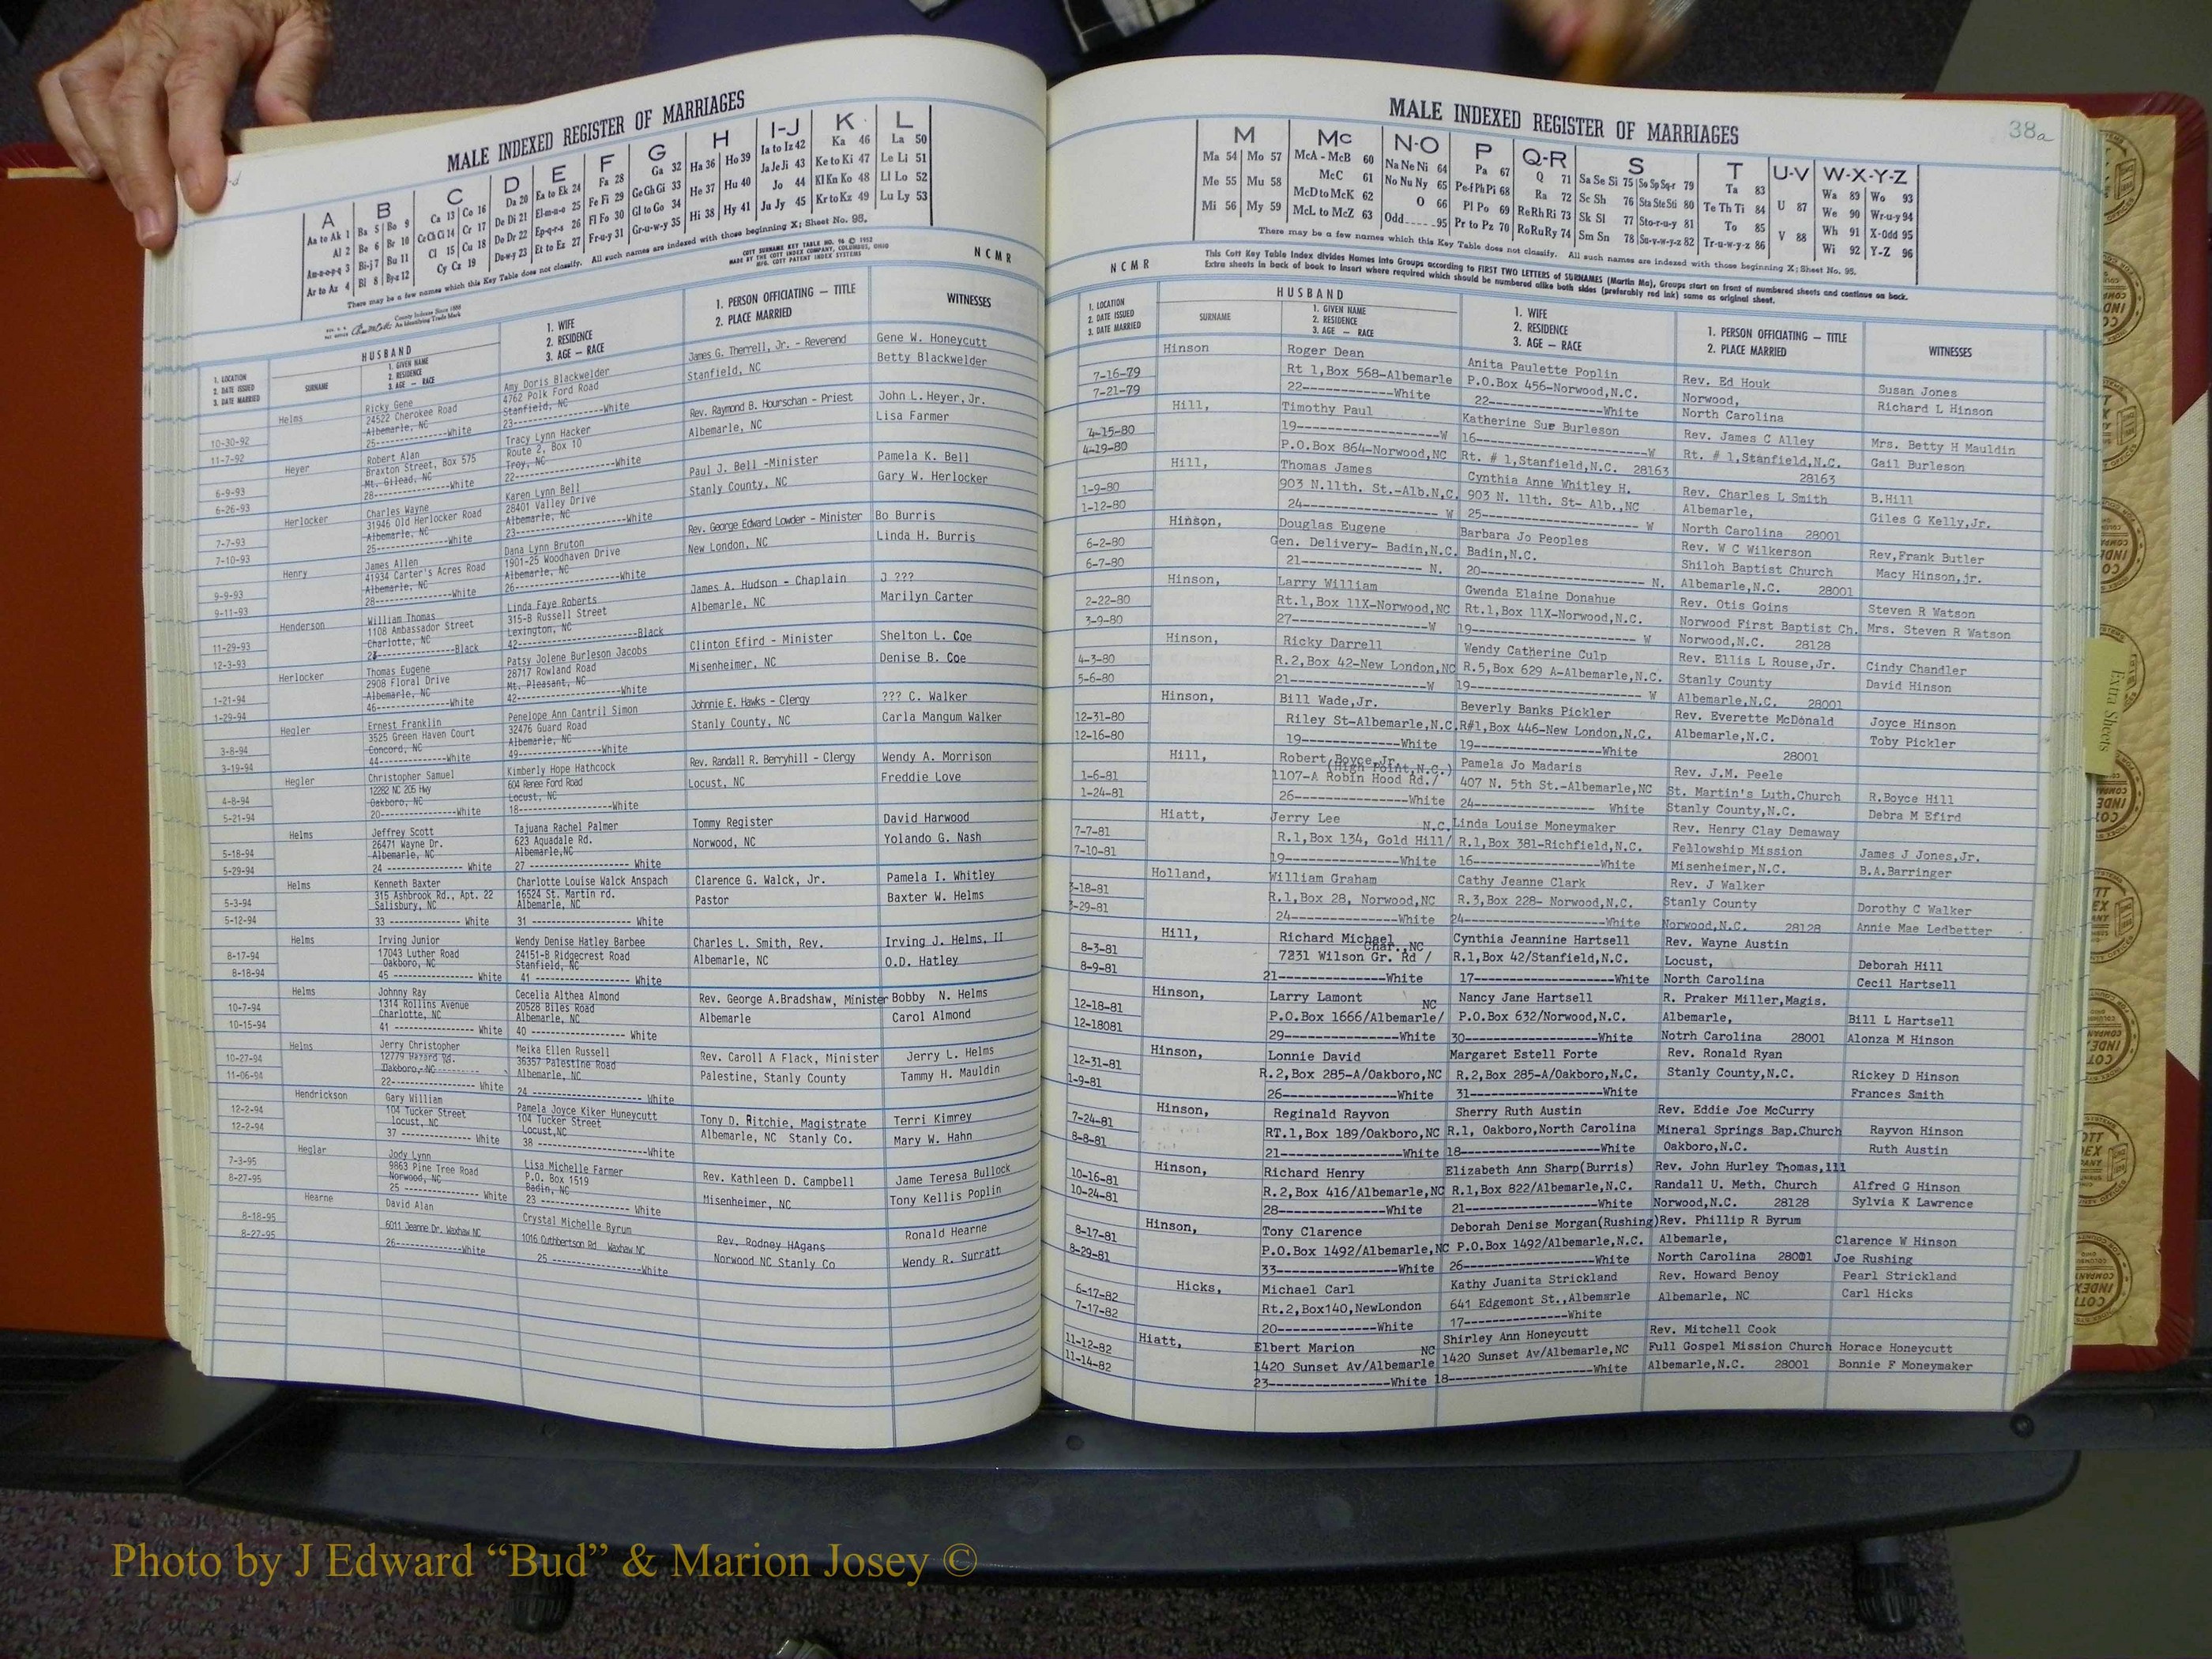 MALE INDEXED REGISTER OF MARRIAGES
A B C D E F G H I-J K L
Aa to Ak 1 Ba 5 Bo 9 Ca 13 Co 16 Da 20 Ea to Ek 24 Fa 28 Ga 32 Ha 36 Ho 39 Ia to Iz 42 Ka 46 La 50
Al 2 Be 6 Br 10 Ce Ch Ci 14 Cr 17 De Di 21 El-m-n-o 25 Fe Fi 29 Ge Gh Gi 33 He 37 Hu 40 Ja Je Ji 43 Ke to Ki 47 Le Li 51
Am-n-o-p-q 3 Bi-j 7 Bu 11 Cl 15 Cu 18 Do Dr 22 Ep-q-r-s 26 Fl Fo 30 Gl to Go 34 Hi 38 Hy 41 Jo 44 Kl Kn Ko 48 Ll Lo 52
Ar to Az 4 Bl 8 By-z 12 Cy Cz 19 Du-w-y 23 Et to Ez 27 Fr-u-y 31 Gr-u-w-y 35 Ju Jy 45 Kr to Kz 49 Lu Ly 53
There may be a few names which this Key Table does not classify. All such names are indexed with those beginning X; Sheet No. 95.
COTT SURNAME KEY TABLE NO. 96 © 1952
MADE BY THE COTT INDEX COMPANY, COLUMBUS, OHIO
MFG. COTT PATENT INDEX SYSTEMS
County Indexes Since 1888
An Identifying Trade Mark
N C M R
1. LOCATION
2. DATE ISSUED
3. DATE MARRIED
HUSBAND
SURNAME
1. GIVEN NAME
2. RESIDENCE
3. AGE — RACE
1. WIFE
2. RESIDENCE
3. AGE — RACE
1. PERSON OFFICIATING — TITLE
2. PLACE MARRIED
WITNESSES
Helms Ricky Gene Amy Doris Blackwelder James G. Therrell, Jr. - Reverend Gene W. Honeycutt
10-30-92 24522 Cherokee Road 4762 Polk Ford Road Stanfield, NC Betty Blackwelder
11-7-92 Albemarle, NC Stanfield, NC
25--------------White 23--------------White
Heyer Robert Alan Tracy Lynn Hacker Rev. Raymond B. Hourschan - Priest John L. Heyer, Jr.
6-9-93 Braxton Street, Box 575 Route 2, Box 10 Albemarle, NC Lisa Farmer
6-26-93 Mt. Gilead, NC Troy, NC
28--------------White 22--------------White
Herlocker Charles Wayne Karen Lynn Bell Paul J. Bell -Minister Pamela K. Bell
7-7-93 31946 Old Herlocker Road 28401 Valley Drive Stanly County, NC Gary W. Herlocker
7-10-93 Albemarle, NC Albemarle, NC
25--------------White 23--------------White
Henry James Allen Dana Lynn Bruton Rev. George Edward Lowder - Minister Bo Burris
9-9-93 41934 Carter's Acres Road 1901-25 Woodhaven Drive New London, NC Linda H. Burris
9-11-93 Albemarle, NC Albemarle, NC
28--------------White 26--------------White
Henderson William Thomas Linda Faye Roberts James A. Hudson - Chaplain J ???
11-29-93 1108 Ambassador Street 315-B Russell Street Albemarle, NC Marilyn Carter
12-3-93 Charlotte, NC Lexington, NC
--------------Black 42--------------Black
Herlocker Thomas Eugene Patsy Jolene Burleson Jacobs Clinton Efird - Minister Shelton L. Coe
1-21-94 2908 Floral Drive 28717 Rowland Road Misenheimer, NC Denise B. Coe
1-29-94 Albemarle, NC Mt. Pleasant, NC
46--------------White 42--------------White
Hegler Ernest Franklin Penelope Ann Cantril Simon Johnnie E. Hawks - Clergy ??? C. Walker
3-8-94 3525 Green Haven Court 32476 Guard Road Stanly County, NC Carla Mangum Walker
3-19-94 Concord, NC Albemarle, NC
44--------------White 49--------------White
Hegler Christopher Samuel Kimberly Hope Hathcock Rev. Randall R. Berryhill - Clergy Wendy A. Morrison
4-8-94 12282 NC 205 Hwy 604 Renee Ford Road Locust, NC Freddie Love
5-21-94 Oakboro, NC Locust, NC
20--------------White 18--------------White
Helms Jeffrey Scott Tajuana Rachel Palmer Tommy Register David Harwood
5-18-94 26471 Wayne Dr. 623 Aquadale Rd. Norwood, NC Yolando G. Nash
5-29-94 Albemarle, NC Albemarle,NC
24 -------------- White 27 -------------- White
Helms Kenneth Baxter Charlotte Louise Walck Anspach Clarence G. Walck, Jr. Pamela I. Whitley
5-3-94 315 Ashbrook Rd., Apt. 22 16524 St. Martin rd. Pastor Baxter W. Helms
5-12-94 Salisbury, NC Albemarle, NC
33 -------------- White 31 -------------- White
Helms Irving Junior Wendy Denise Hatley Barbee Charles L. Smith, Rev. Irving J. Helms, II
8-17-94 17043 Luther Road 24151-B Ridgecrest Road Albemarle, NC O.D. Hatley
8-18-94 Oakboro, NC Stanfield, NC
45 -------------- White 41 -------------- White
Helms Johnny Ray Cecelia Althea Almond Rev. George A.Bradshaw, Minister Bobby N. Helms
10-7-94 1314 Rollins Avenue 20528 Biles Road Albemarle Carol Almond
10-15-94 Charlotte, NC Albemarle, NC
41 -------------- White 40 -------------- White
Helms Jerry Christopher Meika Ellen Russell Rev. Caroll A Flack, Minister Jerry L. Helms
10-27-94 12779 Hazard Rd. 36357 Palestine Road Palestine, Stanly County Tammy H. Mauldin
11-06-94 Oakboro, NC Albemarle, NC
22-------------- White 24 -------------- White
Hendrickson Gary William Pamela Joyce Kiker Huneycutt Tony D. Ritchie, Magistrate Terri Kimrey
12-2-94 104 Tucker Street 104 Tucker Street Albemarle, NC Stanly Co. Mary W. Hahn
12-2-94 locust, NC Locust,NC
37 -------------- White 38 --------------White
Heglar Jody Lynn Lisa Michelle Farmer Rev. Kathleen D. Campbell Jame Teresa Bullock
7-3-95 9863 Pine Tree Road P.O. Box 1519 Misenheimer, NC Tony Kellis Poplin
8-27-95 Norwood, NC Badin, NC
25 -------------- White 23 -------------- White
Hearne David Alan Crystal Michelle Byrum Rev. Rodney HAgans Ronald Hearne
8-18-95 6011 Jeanne Dr. Waxhaw NC 1016 Cuthbertson Rd Waxhaw NC Norwood NC Stanly Co Wendy R. Surratt
8-27-95 26--------------White 25 --------------White
MALE INDEXED REGISTER OF MARRIAGES
38a
M Mc N-O P Q-R S T U-V W-X-Y-Z
Ma 54 Mo 57 McA - McB 60 Na Ne Ni 64 Pa 67 Q 71 Sa Se Si 75 So Sp Sq-r 79 Ta 83 U 87 Wa 89 Wo 93
Me 55 Mu 58 McC 61 No Nu Ny 65 Pe-f Ph Pi 68 Ra 72 Sc Sh 76 Sta Ste Sti 80 Te Th Ti 84 V 88 We 90 Wr-u-y 94
Mi 56 My 59 McD to McK 62 O 66 Pl Po 69 Re Rh Ri 73 Sk Sl 77 Sto-r-u-y 81 To 85 Wh 91 X-Odd 95
McL to McZ 63 Odd 95 Pr to Pz 70 Ro Ru Ry 74 Sm Sn 78 Su-v-w-y-z 82 Tr-u-w-y-z 86 Wi 92 Y-Z 96
There may be a few names which this Key Table does not classify. All such names are indexed with those beginning X; Sheet No. 95.
This Cott Key Table Index divides Names into Groups according to FIRST TWO LETTERS of SURNAMES (Martin Ma), Groups start on front of numbered sheets and continue on back.
Extra sheets in back of book to insert where required which should be numbered alike both sides (preferably red ink) same as original sheet.
N C M R
1. LOCATION
2. DATE ISSUED
3. DATE MARRIED
HUSBAND
SURNAME
1. GIVEN NAME
2. RESIDENCE
3. AGE — RACE
1. WIFE
2. RESIDENCE
3. AGE — RACE
1. PERSON OFFICIATING — TITLE
2. PLACE MARRIED
WITNESSES
Hinson Roger Dean Anita Paulette Poplin Rev. Ed Houk Susan Jones
7-16-79 Rt 1,Box 568-Albemarle P.O.Box 456-Norwood,N.C. Norwood, Richard L Hinson
7-21-79 22--------------White 22--------------White North Carolina
Hill, Timothy Paul Katherine Sue Burleson Rev. James C Alley Mrs. Betty H Mauldin
4-15-80 19--------------W 16--------------W Rt. # 1,Stanfield,N.C. Gail Burleson
4-19-80 P.O.Box 864-Norwood,NC Rt. # 1,Stanfield,N.C. 28163 28163
Hill, Thomas James Cynthia Anne Whitley H. Rev. Charles L Smith B.Hill
1-9-80 903 N.11th. St.-Alb.N.C. 903 N. 11th. St- Alb.,NC Albemarle, Giles G Kelly,Jr.
1-12-80 24-------------- W 25-------------- W North Carolina 28001
Hinson, Douglas Eugene Barbara Jo Peoples Rev. W C Wilkerson Rev,Frank Butler
6-2-80 Gen. Delivery- Badin,N.C. Badin,N.C. Shiloh Baptist Church Macy Hinson,jr.
6-7-80 21-------------- N. 20-------------- N. Albemarle,N.C. 28001
Hinson, Larry William Gwenda Elaine Donahue Rev. Otis Goins Steven R Watson
2-22-80 Rt.1,Box 11X-Norwood,NC Rt.1,Box 11X-Norwood,N.C. Norwood First Baptist Ch. Mrs. Steven R Watson
3-9-80 27--------------W 19-------------- W Norwood,N.C. 28128
Hinson, Ricky Darrell Wendy Catherine Culp Rev. Ellis L Rouse,Jr. Cindy Chandler
4-3-80 R.2,Box 42-New London,NC R.5,Box 629 A-Albemarle,N.C. Stanly County David Hinson
5-6-80 21--------------W 19-------------- W Albemarle,N.C. 28001
Hinson, Bill Wade,Jr. Beverly Banks Pickler Rev. Everette McDonald Joyce Hinson
12-31-80 Riley St-Albemarle,N.C. R#1,Box 446-New London,N.C. Albemarle,N.C. Toby Pickler
12-16-80 19--------------White 19--------------White 28001
Hill, Robert Boyce,Jr. Pamela Jo Madaris Rev. J.M. Peele
(High Point,N.C.)
1-6-81 1107-A Robin Hood Rd./ 407 N. 5th St.-Albemarle,NC St. Martin's Luth.Church R.Boyce Hill
1-24-81 26--------------White 24-------------- White Stanly County,N.C. Debra M Efird
Hiatt, Jerry Lee N.C. Linda Louise Moneymaker Rev. Henry Clay Demaway
7-7-81 R.1,Box 134, Gold Hill/ R.1,Box 381-Richfield,N.C. Fellowship Mission James J Jones,Jr.
7-10-81 19--------------White 16--------------White Misenheimer,N.C. B.A.Barringer
Holland, William Graham Cathy Jeanne Clark Rev. J Walker
-18-81 R.1,Box 28, Norwood,NC R.3,Box 228- Norwood,N.C. Stanly County Dorothy C Walker
-29-81 24--------------White 24--------------White Norwood,N.C. 28128 Annie Mae Ledbetter
Hill, Richard Michael Cynthia Jeannine Hartsell Rev. Wayne Austin
Char.,NC
8-3-81 7231 Wilson Gr. Rd / R.1,Box 42/Stanfield,N.C. Locust, Deborah Hill
8-9-81 21--------------White 17--------------White North Carolina Cecil Hartsell
Hinson, Larry Lamont NC Nancy Jane Hartsell R. Praker Miller,Magis.
12-18-81 P.O.Box 1666/Albemarle/ P.O.Box 632/Norwood,N.C. Albemarle, Bill L Hartsell
12-18081 29--------------White 30--------------White Notrh Carolina 28001 Alonza M Hinson
Hinson, Lonnie David Margaret Estell Forte Rev. Ronald Ryan
12-31-81 R.2,Box 285-A/Oakboro,NC R.2,Box 285-A/Oakboro,N.C. Stanly County,N.C. Rickey D Hinson
1-9-81 26--------------White 31--------------White Frances Smith
Hinson, Reginald Rayvon Sherry Ruth Austin Rev. Eddie Joe McCurry
7-24-81 RT.1,Box 189/Oakboro,NC R.1, Oakboro,North Carolina Mineral Springs Bap.Church Rayvon Hinson
8-8-81 21--------------White 18--------------White Oakboro,N.C. Ruth Austin
Hinson, Richard Henry Elizabeth Ann Sharp(Burris) Rev. John Hurley Thomas,111
10-16-81 R.2,Box 416/Albemarle,NC R.1,Box 822/Albemarle,N.C. Randall U. Meth. Church Alfred G Hinson
10-24-81 28--------------White 21--------------White Norwood,N.C. 28128 Sylvia K Lawrence
Hinson, Tony Clarence Deborah Denise Morgan(Rushing) Rev. Phillip R Byrum
8-17-81 P.O.Box 1492/Albemarle,NC P.O.Box 1492/Albemarle,N.C. Albemarle, Clarence W Hinson
8-29-81 33--------------White 26--------------White North Carolina 28001 Joe Rushing
Hicks, Michael Carl Kathy Juanita Strickland Rev. Howard Benoy Pearl Strickland
6-17-82 Rt.2,Box140,NewLondon 641 Edgemont St.,Albemarle Albemarle, NC Carl Hicks
7-17-82 20--------------White 17--------------White
Hiatt, Elbert Marion NC Shirley Ann Honeycutt Rev. Mitchell Cook
11-12-82 1420 Sunset Av/Albemarle 1420 Sunset Av/Albemarle,NC Full Gospel Mission Church Horace Honeycutt
11-14-82 23--------------White 18--------------White Albemarle,N.C. 28001 Bonnie F Moneymaker
Extra Sheets
Photo by J Edward “Bud” & Marion Josey ©